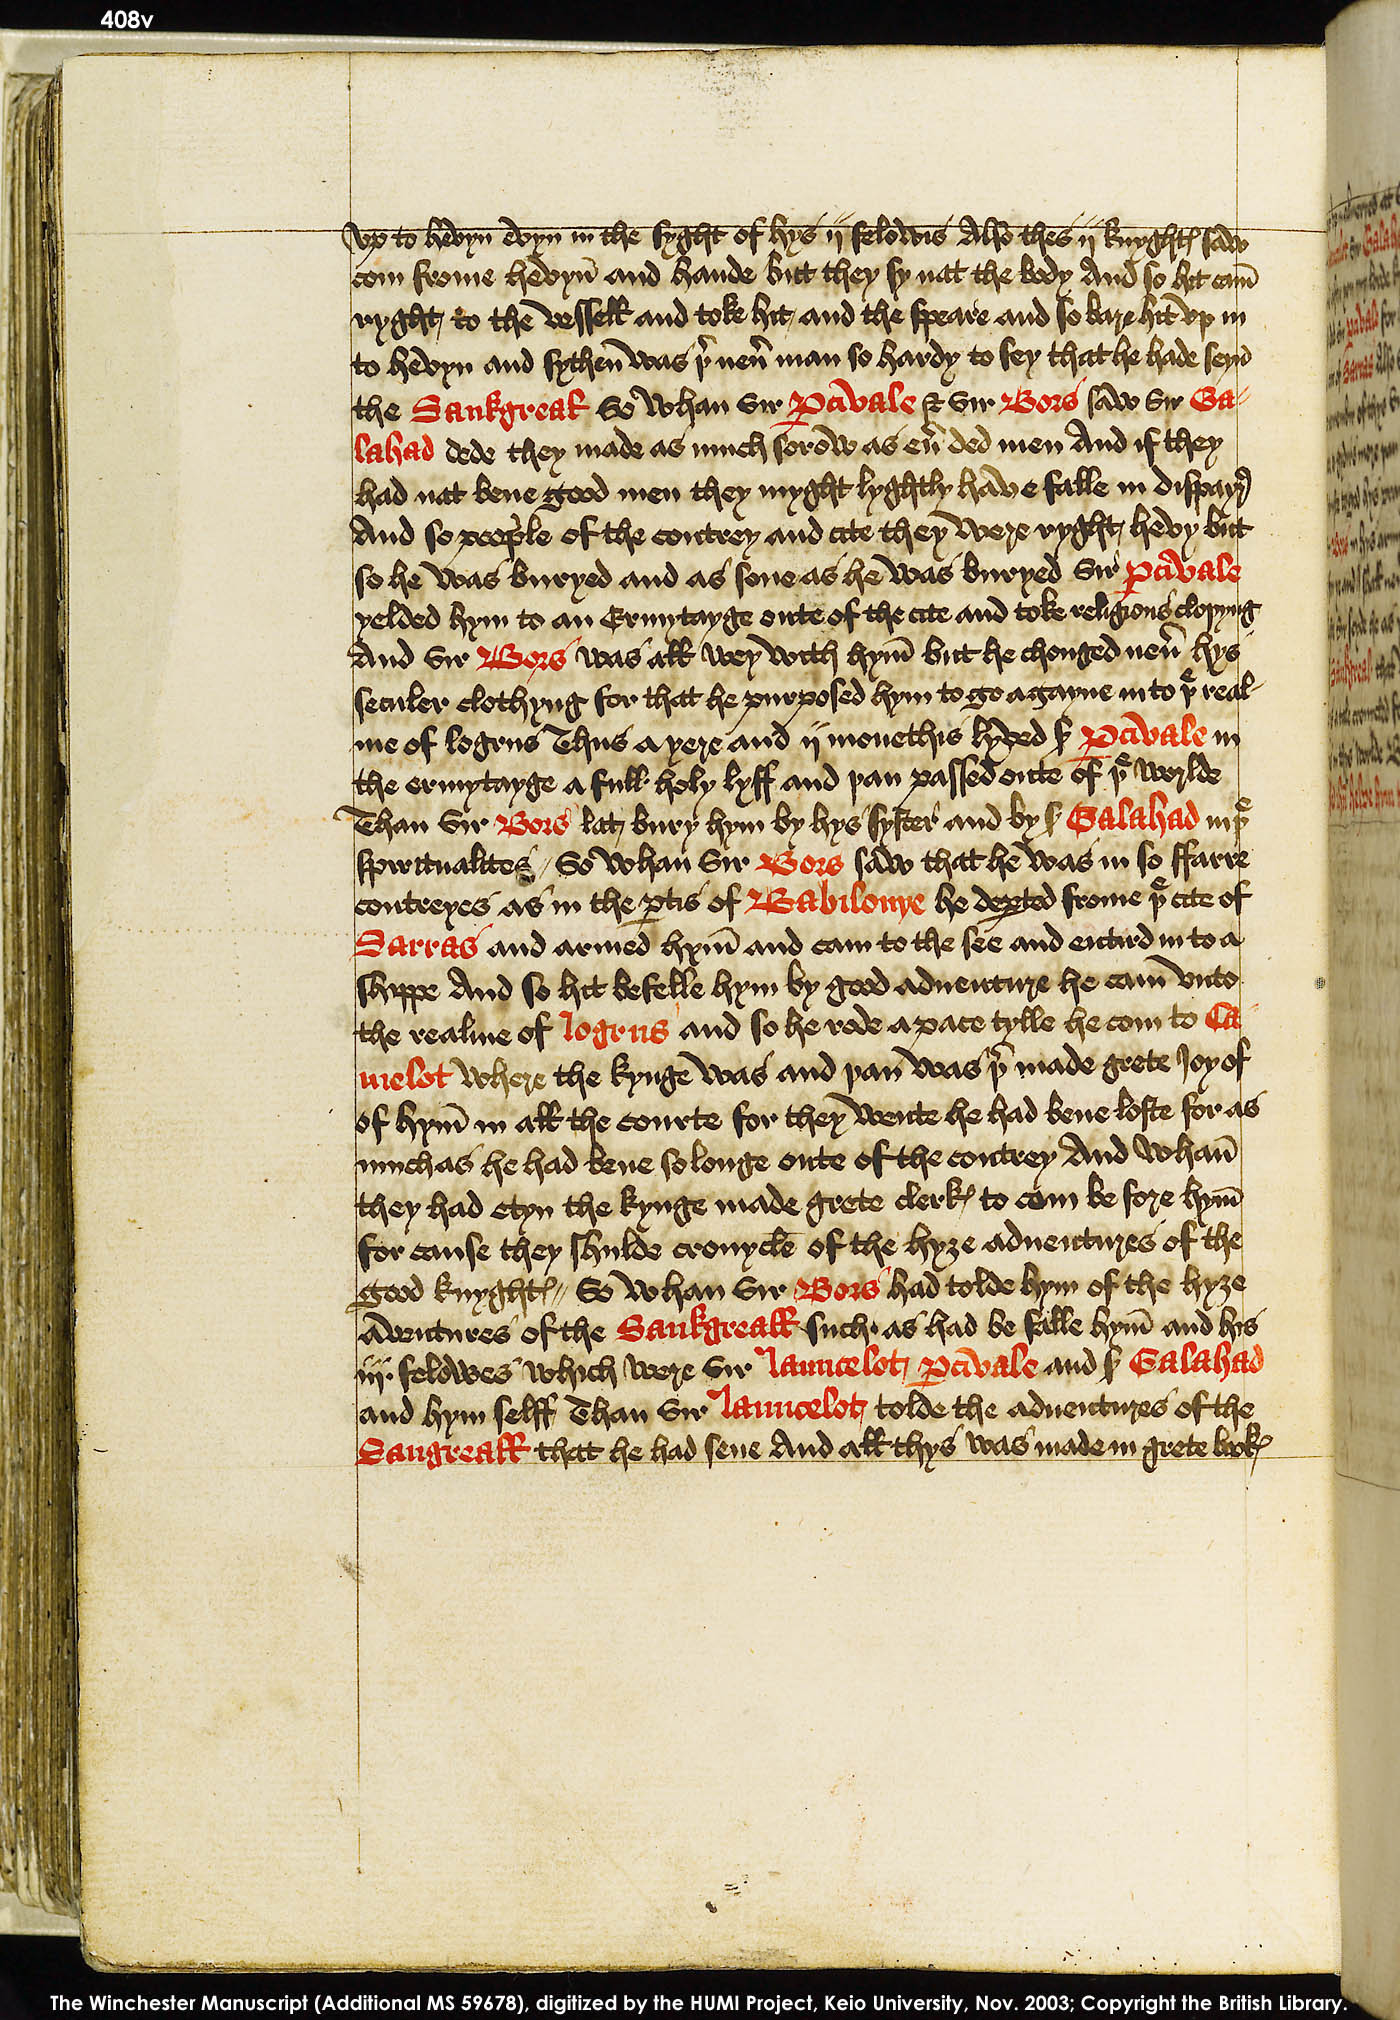 408v
vp to hevyn evyn in the syght of hys ij felowis Also thes ij knyghtꝭ saw
com frome hevyn̄ and hande but they sy nat the body And so hit cam̄
ryght to the vessell and toke hit and the speare and so bare hit vp in
to hevyn and sythen̄ was þͬ neu̾ man so hardy to sey that he hade seyn̄
the Sankgreal So whan Sir Pcivale & Sir Bors saw Sir Ga-
lahad dede they made as much sorow as eu̾ ded men And if they
had nat bene good men they myght lyghtly have falle in dispayr̄
And so people of the contrey and cite they were ryght hevy but
so he was buryed and as sone as he was buryed Sir Pcivale
yelded hym to an Ermytayge oute of the cite and toke religious cloþyng
And Sir Bors was all wey with hym̄ but he chonged neu̾ hys
seculer clothyng for that he purposed hym to go agayne in to þͤ real-
me of logrus Thus a yere and ij monethis lyved Sͬ Pcivale in
the ermytayge a full holy lyff and þan passed oute of þͤ worlde
Than Sir Bors lat bury hym by hys syster and by Sͬ Galahad in þͤ
spiritualites // So whan Sir Bors saw that he was in so ffarre
contreyes as in the ꝑtis of Babilonye he deꝑted frome þͤ cite of
Sarras and armed hym̄ and cam to the see and entird in to a
shippe And so hit befelle hym by good adventure he cam̄ vnto
the realme of logrus and so he rode a pace tylle he com to Ca-
melot where the kynge was and þan̄ was þͬ made grete Joy of
of hym̄ in all the courte for they wente he had bene loste for as
much as he had bene so longe oute of the contrey And whan̄
they had etyn the kynge made grete clerkꝭ to com be fore hym̄
for cause they shulde cronycle of the hyȝe adventures of the
good knyghtꝭ // So whan Sir Bors had tolde hym of the hyȝe
aventures of the Sankgreall such as had be falle hym̄ and his
iij felowes which were Sir launcelot Pcivale and Sͬ Galahad
and hym selff Than Sir launcelot tolde the adventures of the
Sangreall that he had sene And all thys was made in grete bookꝭ
The Winchester Manuscript (Additional MS 59678), digitized by the HUMI Project, Keio University, Nov. 2003; Copyright the British Library.